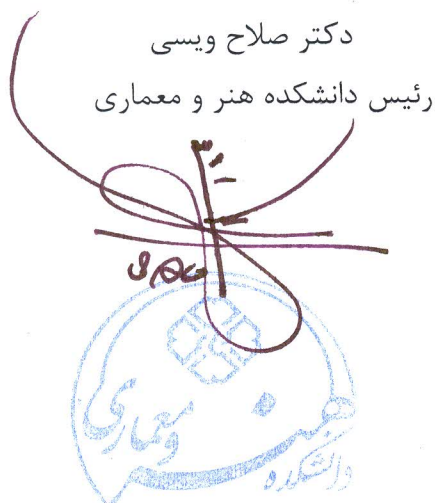 دکتر صلاح ویسی
رئیس دانشکده هنر و معماری
دانشکده
هنر
و معماری